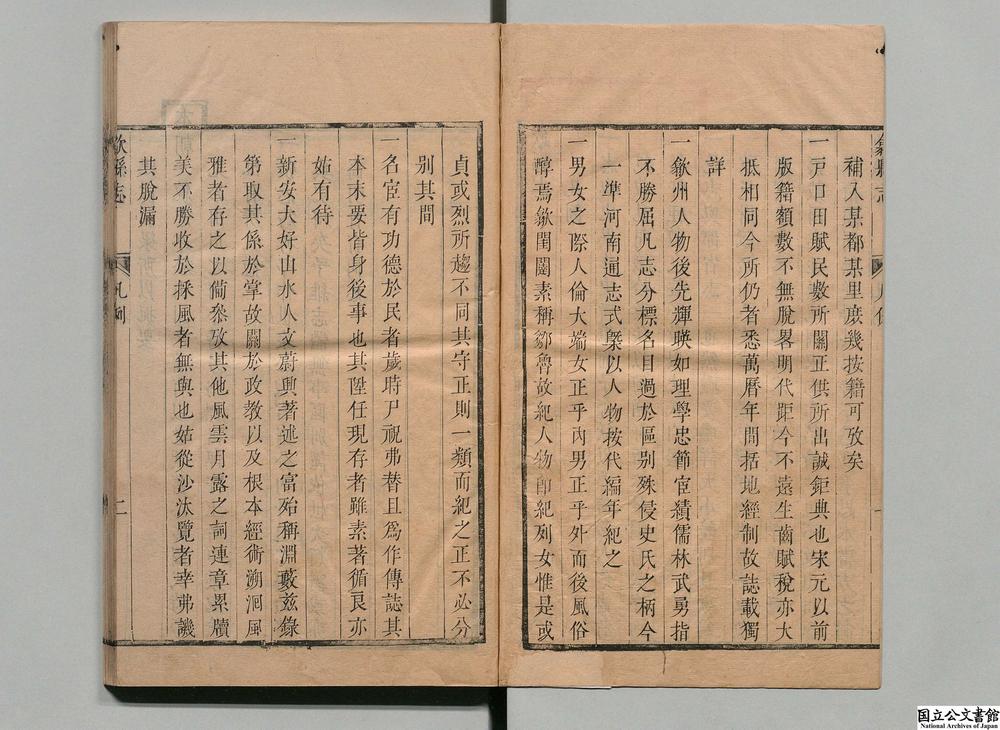 補入某都某里庶幾按籍可攷矣
一戶口田賦民數所關正供所出誠鉅典也宋元以前
版籍額數不無脫畧明代距今不遠生齒賦稅亦大
抵相同今所仍者悉萬曆年間括地經制故誌載獨
詳
一歙州人物後先輝暎如理學忠節宦績儒林武勇指
不勝屈凡志分標名目過於區别殊侵史氏之柄今
一準河南通志式槩以人物按代編年紀之
一男女之際人倫大端女正乎內男正乎外而後風俗
醇焉歙閨闥素稱鄒魯故紀人物卽紀列女惟是或
貞或烈所趨不同其守正則一類而紀之正不必分
别其間
一名宦有功德於民者歲時尸祝弗替且爲作傳誌其
本末要皆身後事也其陞任現存者雖素著循良亦
姑有待
一新安大好山水人文蔚興著述之富殆稱淵藪兹錄
第取其係於掌故關於政教以及根本經術溯洄風
雅者存之以備叅攷其他風雲月露之詞連章累牘
美不勝收於採風者無與也姑從沙汰覽者幸弗譏
其脫漏
歙縣志
凡例
二
国立公文書館
National Archives of Japan